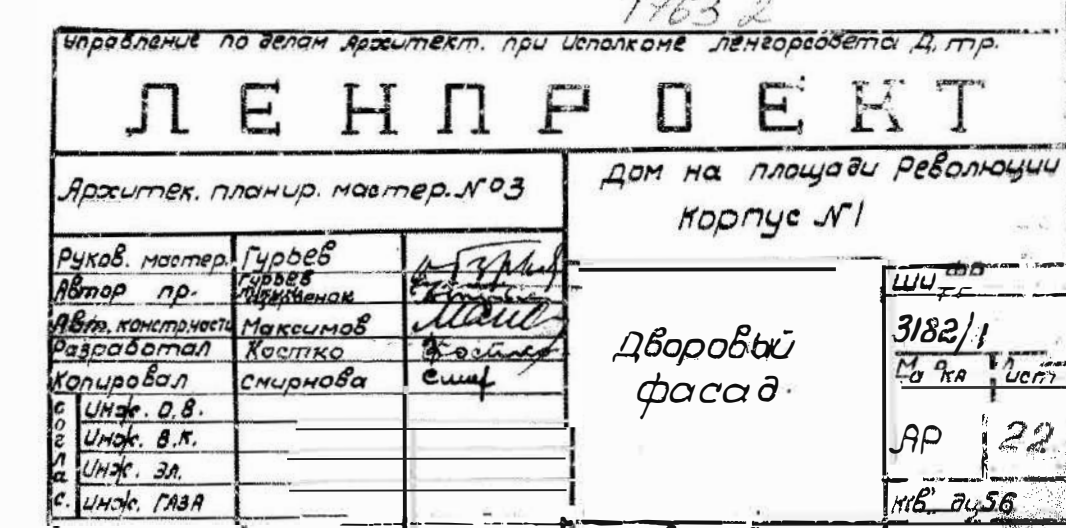 1763 2
Управление по делам Архитект. при исполкоме Ленгорсовета Д. тр.
ЛЕНПРОЕКТ
Архитек. планир. мастер. №3
Дом на площади Революции
Корпус №1
Руков. мастер. Гурьев
Автор пр. Гурьев
Авт. констр. части Максимов
Разработал Костко
Копировал Смирнова
Соглас.
Инж. О.В.
Инж. В.К.
Инж. Эл.
Инж. ГАЗА
Дворовый
фасад.
Шифр
3182/1
Марка Лист
АР 22